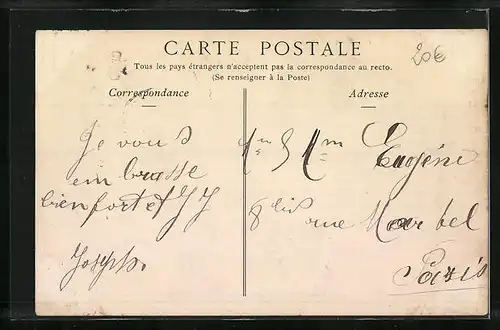 CARTE POSTALE
20€
Tous les pays étrangers n'acceptent pas la correspondance au recto.
(Se renseigner à la Poste)
Correspondance
Adresse
Je vous
embrasse
bien fort
Joseph.
Eugéne
8 bis rue
Paris